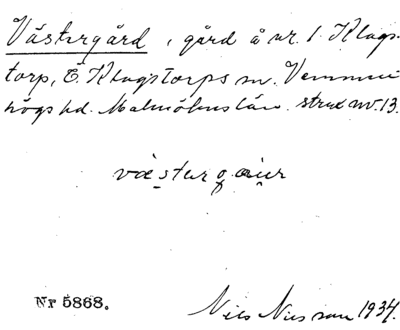 Västergård, gård å nr. 1 Klags-
torp, Ö. Klagstorps sn. Vemmen-
högs hd. Malmöhus län. strax nv. 13.
væstərgɑ̊ur
Nr 5868.
Nils Nilsson 1934.